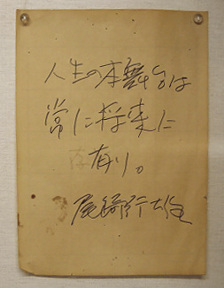 人生の本舞台は
常に将来に
有り。
尾崎行雄